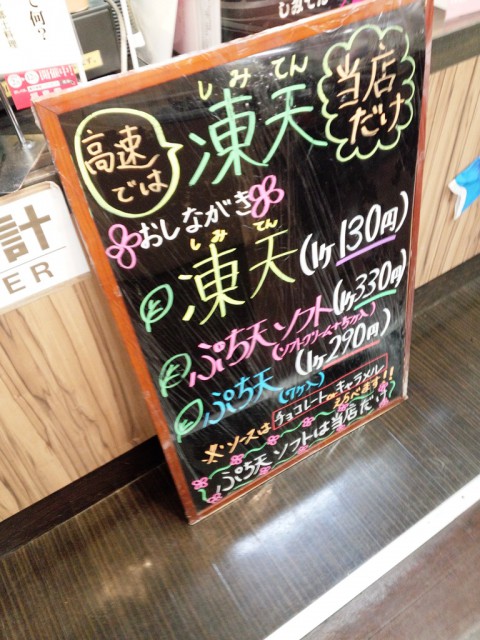 高速
では
しみてん
凍天
当店
だけ
おしながき
しみてん
凍天(1ヶ130円)
ぷち天ソフト(1ヶ330円)
(ソフトクリーム+ぷち7ヶ入)
ぷち天(7ヶ入)(1ヶ290円)
※ソースはチョコレートorキャラメル
えらべます!!
ぷち天ソフトは当店だけ
計
ER
開催中
何?